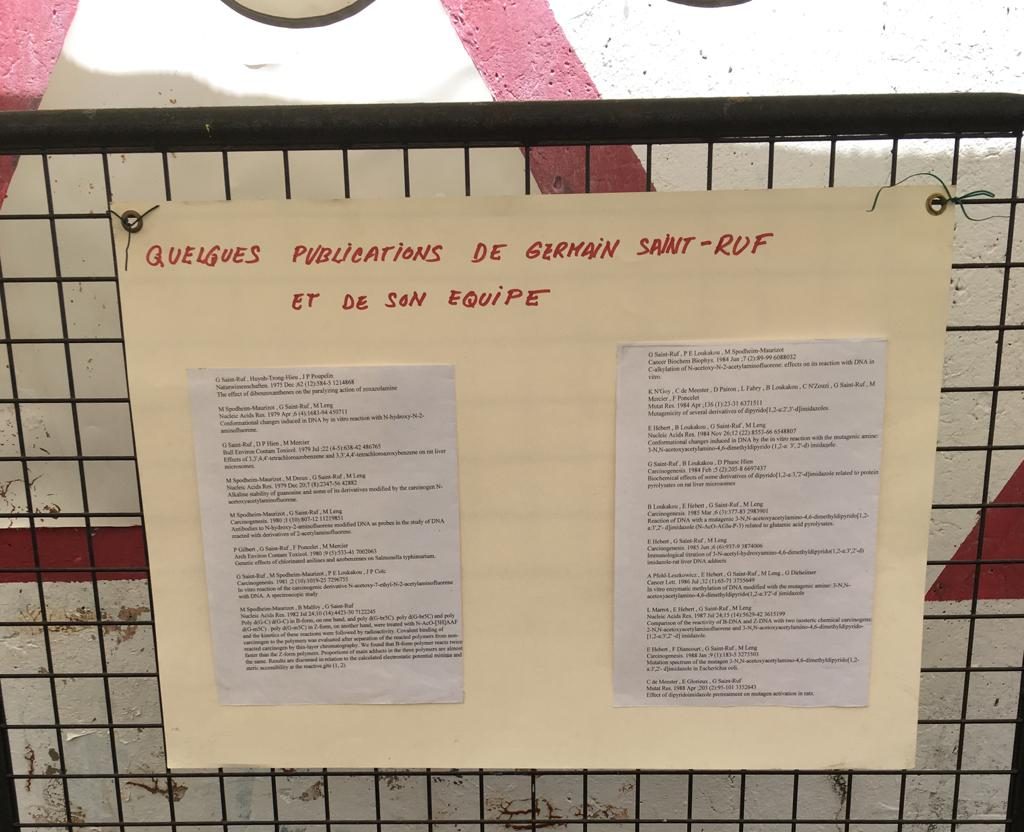 QUELQUES PUBLICATIONS DE GERMAIN SAINT-RUF
ET DE SON EQUIPE
G Saint-Ruf , Huynh-Trong-Hieu , J P Poupelin
Naturwissenschaften. 1975 Dec ;62 (12):584-5 1214868
The effect of dibenzoxanthenes on the paralyzing action of zoxazolamine
M Spodheim-Maurizot , G Saint-Ruf , M Leng
Nucleic Acids Res. 1979 Apr ;6 (4):1683-94 450711
Conformational changes induced in DNA by in vitro reaction with N-hydroxy-N-2-
aminofluorene.
G Saint-Ruf , D P Hien , M Mercier
Bull Environ Contam Toxicol. 1979 Jul ;22 (4-5):638-42 486765
Effects of 3,3',4,4'-tetrachloroazobenzene and 3,3',4,4'-tetrachloroazoxybenzene on rat liver
microsomes.
M Spodheim-Maurizot , M Dreux , G Saint-Ruf , M Leng
Nucleic Acids Res. 1979 Dec 20;7 (8):2347-56 42882
Alkaline stability of guanosine and some of its derivatives modified by the carcinogen N-
acetoxyacetylaminofluorene.
M Spodheim-Maurizot , G Saint-Ruf , M Leng
Carcinogenesis. 1980 ;1 (10):807-12 11219851
Antibodies to N-hydroxy-2-aminofluorene modified DNA as probes in the study of DNA
reacted with derivatives of 2-acetylaminofluorene.
P Gilbert , G Saint-Ruf , F Poncelet , M Mercier
Arch Environ Contam Toxicol. 1980 ;9 (5):533-41 7002063
Genetic effects of chlorinated anilines and azobenzenes on Salmonella typhimurium.
G Saint-Ruf , M Spodheim-Maurizot , P E Loukakou , J P Cotic
Carcinogenesis. 1981 ;2 (10):1019-25 7296755
In vitro reaction of the carcinogenic derivative N-acetoxy-7-ethyl-N-2-acetylaminofluorene
with DNA. A spectroscopic study
M Spodheim-Maurizot , B Malfoy , G Saint-Ruf
Nucleic Acids Res. 1982 Jul 24;10 (14):4423-30 7122245
Poly d(G-C) d(G-C) in B-form, on one hand, and poly d(G-br5C) poly d(G-br5C) and poly
d(G-m5C) . poly d(G-m5C) in Z-form, on another hand, were treated with N-AcO-[3H]AAF
and the kinetics of these reactions were followed by radioactivity. Covalent binding of
carcinogen to the polymers was evaluated after separation of the reacted polymers from non-
reacted carcinogen by thin-layer chromatography. We found that B-form polymer reacts twice
faster than the Z-form polymers. Proportions of main adducts in the three polymers are almost
the same. Results are discussed in relation to the calculated electrostatic potential minima and
steric accessibility at the reactive site (1, 2).
G Saint-Ruf , P E Loukakou , M Spodheim-Maurizot
Cancer Biochem Biophys. 1984 Jun ;7 (2):89-99 6088032
C-alkylation of N-acetoxy-N-2-acetylaminofluorene: effects on its reaction with DNA in
vitro.
K N'Goy , C de Meester , D Pairon , L Fabry , B Loukakou , C N'Zouzi , G Saint-Ruf , M
Mercier , F Poncelet
Mutat Res. 1984 Apr ;136 (1):23-31 6371511
Mutagenicity of several derivatives of dipyrido[1,2-a:2',3'-d]imidazoles.
E Hébert , B Loukakou , G Saint-Ruf , M Leng
Nucleic Acids Res. 1984 Nov 26;12 (22):8553-66 6548807
Conformational changes induced in DNA by the in vitro reaction with the mutagenic amine:
3-N,N-acetoxyacetylamino-4,6-dimethyldipyrido (1,2-a: 3', 2'- d) imidazole.
G Saint-Ruf , B Loukakou , D Phane Hien
Carcinogenesis. 1984 Feb ;5 (2):205-8 6697437
Biochemical effects of some derivatives of dipyrido[1,2-a:3',2'-d]imidazole related to protein
pyrolysates on rat liver microsomes
B Loukakou , E Hebert , G Saint-Ruf , M Leng
Carcinogenesis. 1985 Mar ;6 (3):377-83 2983901
Reaction of DNA with a mutagenic 3-N,N-acetoxyacetylamino-4,6-dimethyldipyrido[1,2-
a:3',2'-d]imidazole (N-AcO-AGlu-P-3) related to glutamic acid pyrolysates.
E Hebert , G Saint-Ruf , M Leng
Carcinogenesis. 1985 Jun ;6 (6):937-9 3874006
Immunological titration of 3-N-acetyl-hydroxyamino-4,6-dimethyldipyrido(1,2-a:3',2'-d)
imidazole-rat liver DNA adducts
A Pfohl-Leszkowicz , E Hebert , G Saint-Ruf , M Leng , G Dirheimer
Cancer Lett. 1986 Jul ;32 (1):65-71 3755649
In vitro enzymatic methylation of DNA modified with the mutagenic amine: 3-N,N-
acetoxyacetylamino-4,6-dimethyldipyrido(1,2-a:3'2'-d )imidazole
L Marrot , E Hebert , G Saint-Ruf , M Leng
Nucleic Acids Res. 1987 Jul 24;15 (14):5629-42 3615199
Comparison of the reactivity of B-DNA and Z-DNA with two isosteric chemical carcinogens:
2-N,N-acetoxyacetylaminofluorene and 3-N,N-acetoxyacetylamino-4,6-dimethyldipyrido-
[1,2-a:3',2'-d] imidazole.
E Hebert , F Diancourt , G Saint-Ruf , M Leng
Carcinogenesis. 1988 Jan ;9 (1):183-5 3275503
Mutation spectrum of the mutagen 3-N,N-acetoxyacetylamino-4,6-dimethyldipyrido[1,2-
a:3',2'- d]imidazole in Escherichia coli.
C de Meester , E Glorieux , G Saint-Ruf
Mutat Res. 1988 Apr ;203 (2):95-101 3352643
Effect of dipyridoimidazole pretreatment on mutagen activation in rats.